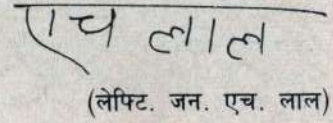 एच लाल
(लेफ्टि. जन. एच. लाल)